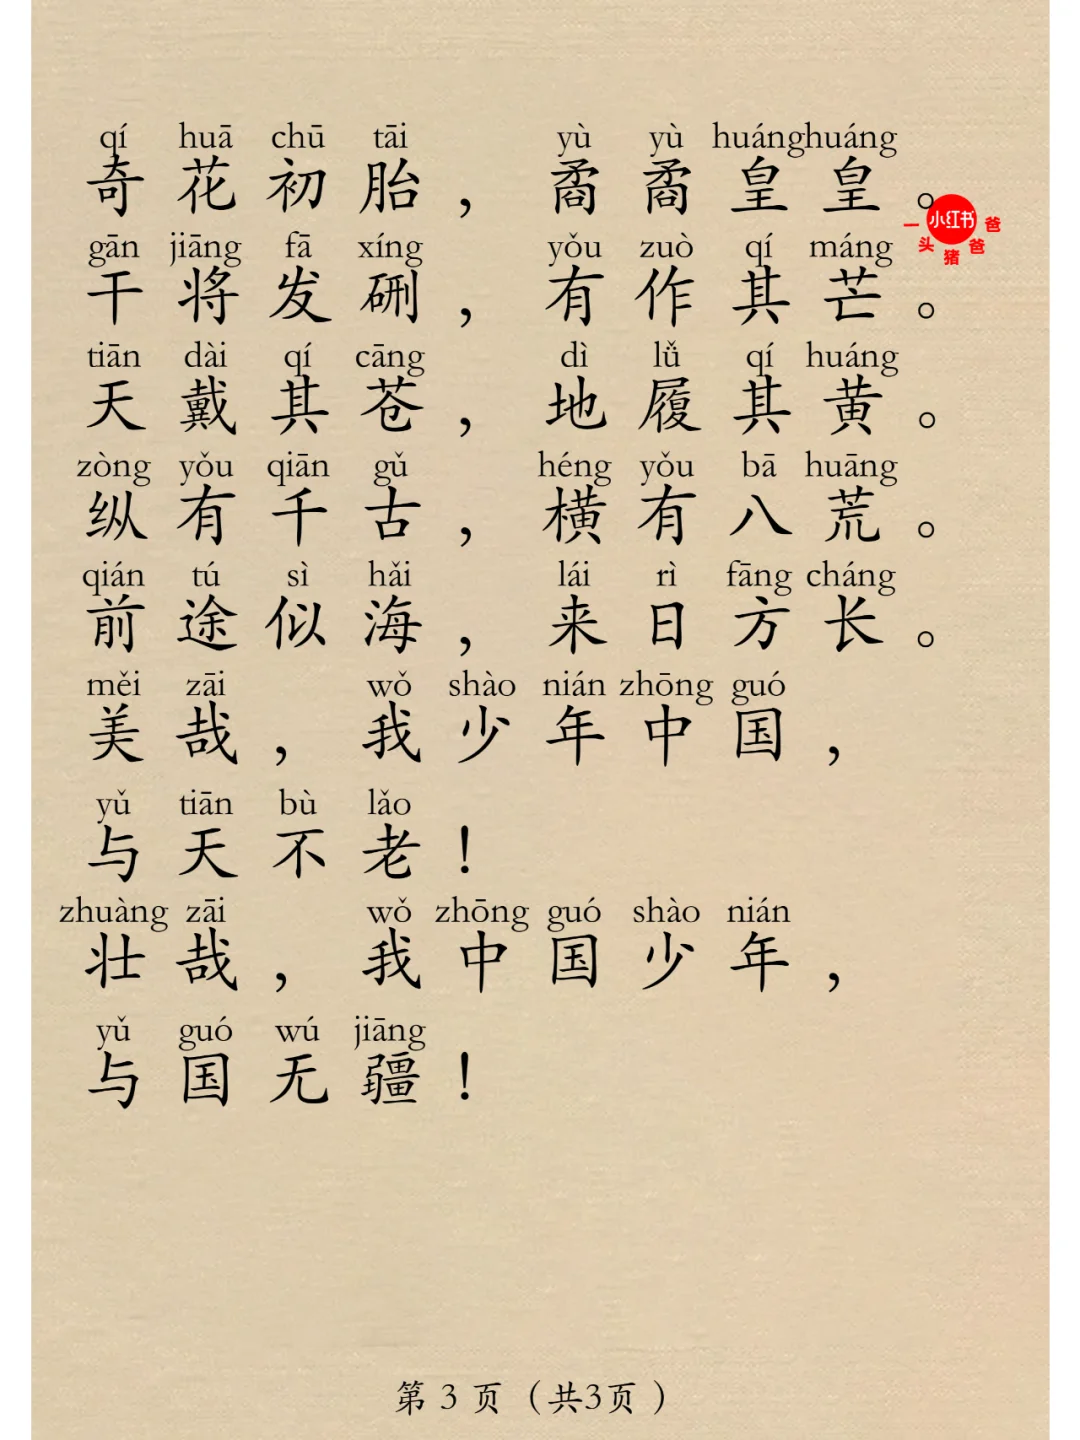 qí huā chū tāi yù yù huánghuáng
奇花初胎，矞矞皇皇。
小红书
一头猪爸爸
gān jiāng fā xíng yǒu zuò qí máng
干将发硎，有作其芒。
tiān dài qí cāng dì lǚ qí huáng
天戴其苍，地履其黄。
zòng yǒu qiān gǔ héng yǒu bā huāng
纵有千古，横有八荒。
qián tú sì hǎi lái rì fāng cháng
前途似海，来日方长。
měi zāi wǒ shào nián zhōng guó
美哉，我少年中国，
yǔ tiān bù lǎo
与天不老！
zhuàng zāi wǒ zhōng guó shào nián
壮哉，我中国少年，
yǔ guó wú jiāng
与国无疆！
第 3 页（共3页）